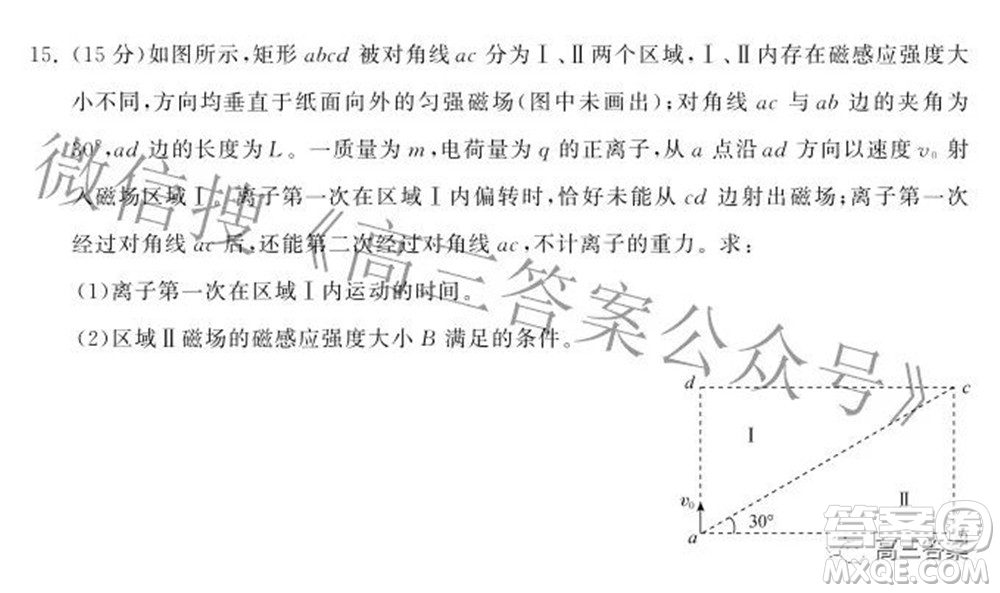 15. (15分)如图所示,矩形 abcd 被对角线 ac 分为Ⅰ、Ⅱ两个区域,Ⅰ、Ⅱ内存在磁感应强度大
小不同,方向均垂直于纸面向外的匀强磁场(图中未画出);对角线 ac 与 ab 边的夹角为
30°,ad 边的长度为 L。一质量为 m,电荷量为 q 的正离子,从 a 点沿 ad 方向以速度 v₀ 射
入磁场区域Ⅰ。离子第一次在区域Ⅰ内偏转时,恰好未能从 cd 边射出磁场;离子第一次
经过对角线 ac 后,还能第二次经过对角线 ac,不计离子的重力。求:
(1)离子第一次在区域Ⅰ内运动的时间。
(2)区域Ⅱ磁场的磁感应强度大小 B 满足的条件。
微信搜《高三答案公众号》
d
c
Ⅰ
v₀
Ⅱ
30°
a
答案圈
高三答案
MXQE.COM